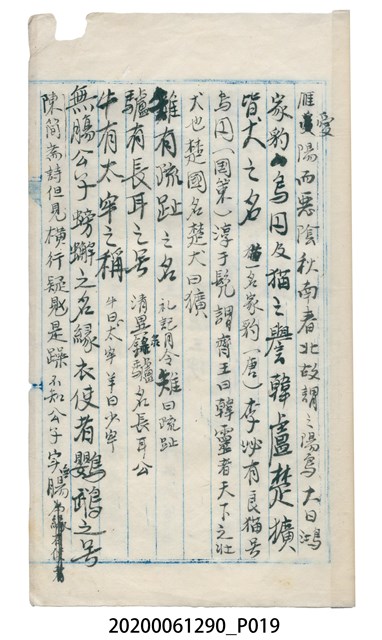 雁愛陽而惡陰秋南春北故謂之陽鳥大曰鴻
家豹烏圓反猫之譽韓盧楚獷
皆犬之名猫一名家豹(唐)李妙有良猫呼
烏円(國策)淳于髡謂齊王曰韓盧者天下之壯
犬也楚國名楚犬曰獷
雉有疏趾之名礼記月令雉曰疏趾
驢有長耳之号清異錄驢名長耳公
牛有太宰之稱牛曰太宰羊曰少宰
無腸公子螃蠏之名緣衣使者鸚鵡之号
陳簡齋詩但見橫行疑是躁不知公子字腸
20200061290_P019